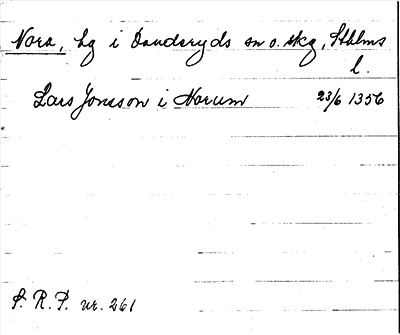 Nora, hg i Danderyds sn o. skg, Sthlms
l.
Lars Jonsson i Norum 23/6 1356
S. R. P. nr. 261